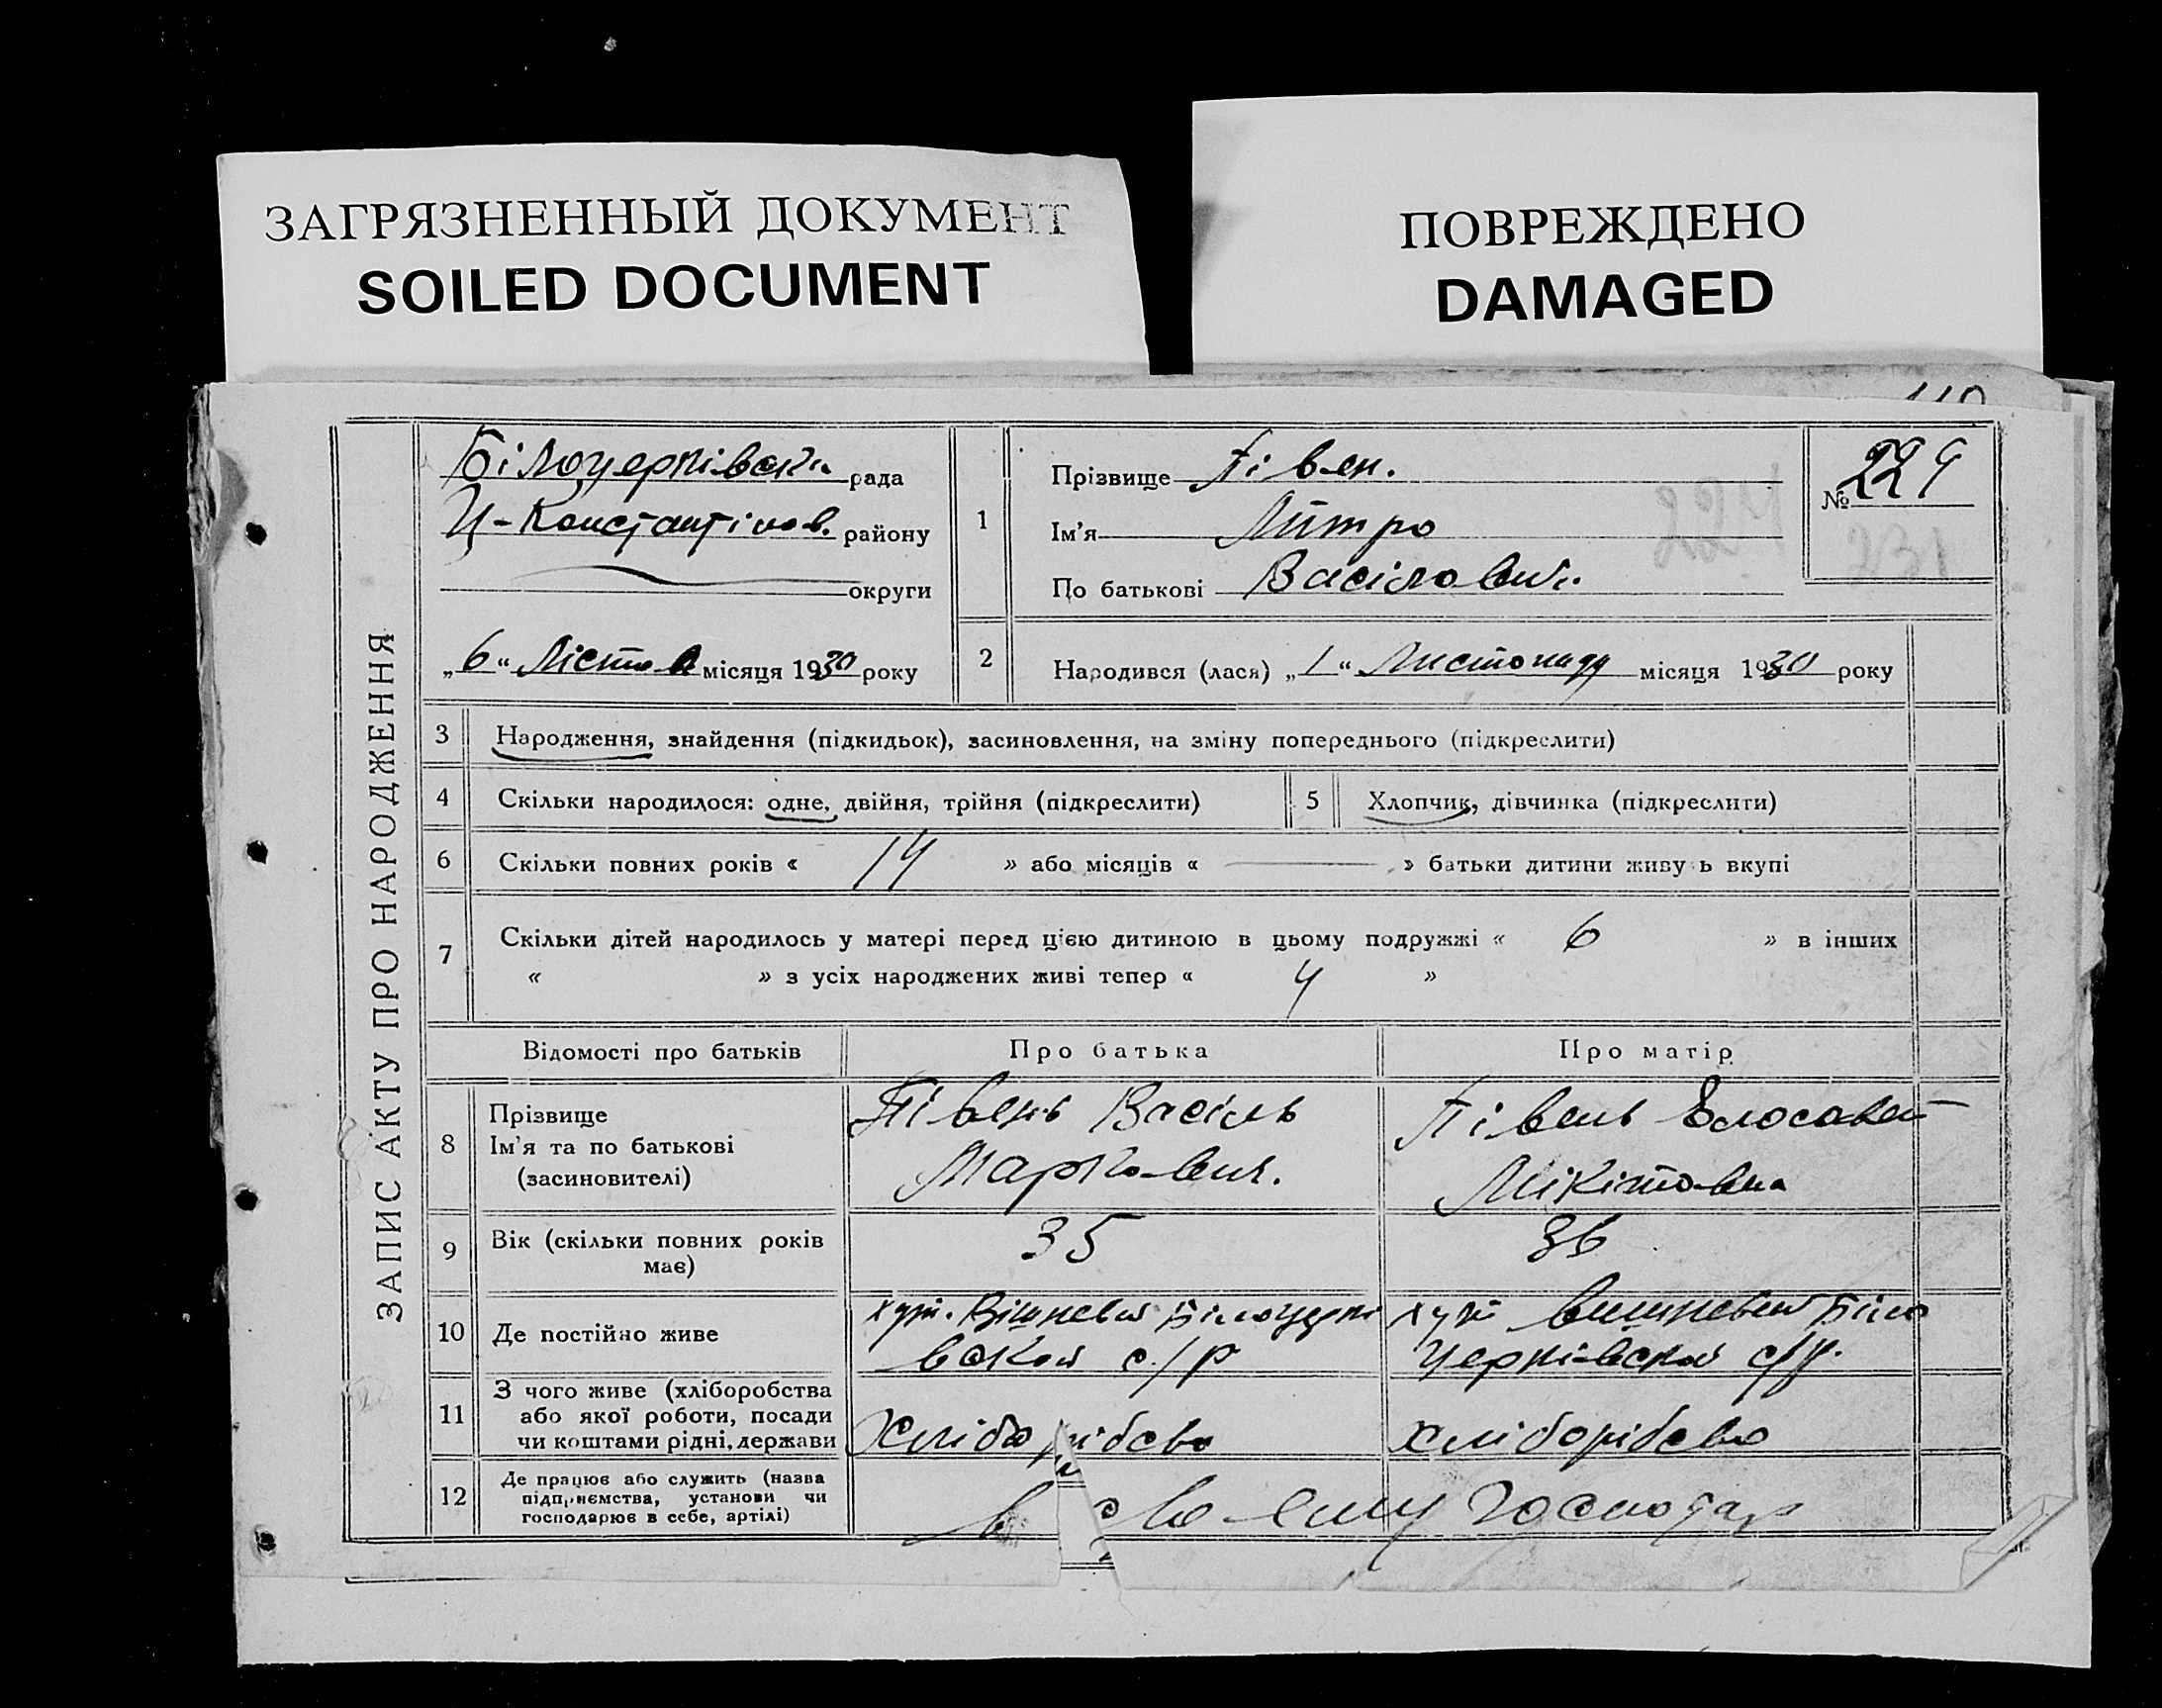 ЗАГРЯЗНЕННЫЙ ДОКУМЕНТ
SOILED DOCUMENT
ПОВРЕЖДЕНО
DAMAGED
ЗАПИС АКТУ ПРО НАРОДЖЕННЯ
Білоцерківська рада
району
округи
„6“ місяця 1930 року
1
Прізвище Півен.
Ім'я Митро
По батькові Васілович.
№ 229
231
2
Народився (лася) „1“ Листопаду місяця 1930 року
3 Народження, знайдення (підкидьок), засиновлення, на зміну попереднього (підкреслити)
4 Скільки народилося: одне, двійня, трійня (підкреслити)
5 Хлопчик, дівчинка (підкреслити)
6 Скільки повних років « 14 » або місяців « — » батьки дитини живуть вкупі
7 Скільки дітей народилось у матері перед цією дитиною в цьому подружжі « 6 » в інших
« » з усіх народжених живі тепер « 4 »
Відомості про батьків Про батька Про матір
8 Прізвище
Ім'я та по батькові
(засиновителі)
Півень Васіль
Маркович.
Півень Елосавет
Мікітовна
9 Вік (скільки повних років
має)
35
36
10 Де постійно живе
хут. Вішневий Білоцеркі
вской с/р
хут Вишневий Біло
церківской с/р.
11 З чого живе (хліборобства
або якої роботи, посади
чи коштами рідні, держави
Хліборібсво
хліборібсво
12 Де працює або служить (назва
підприємства, установи чи
господарює в себе, артілі)
в своєму господар